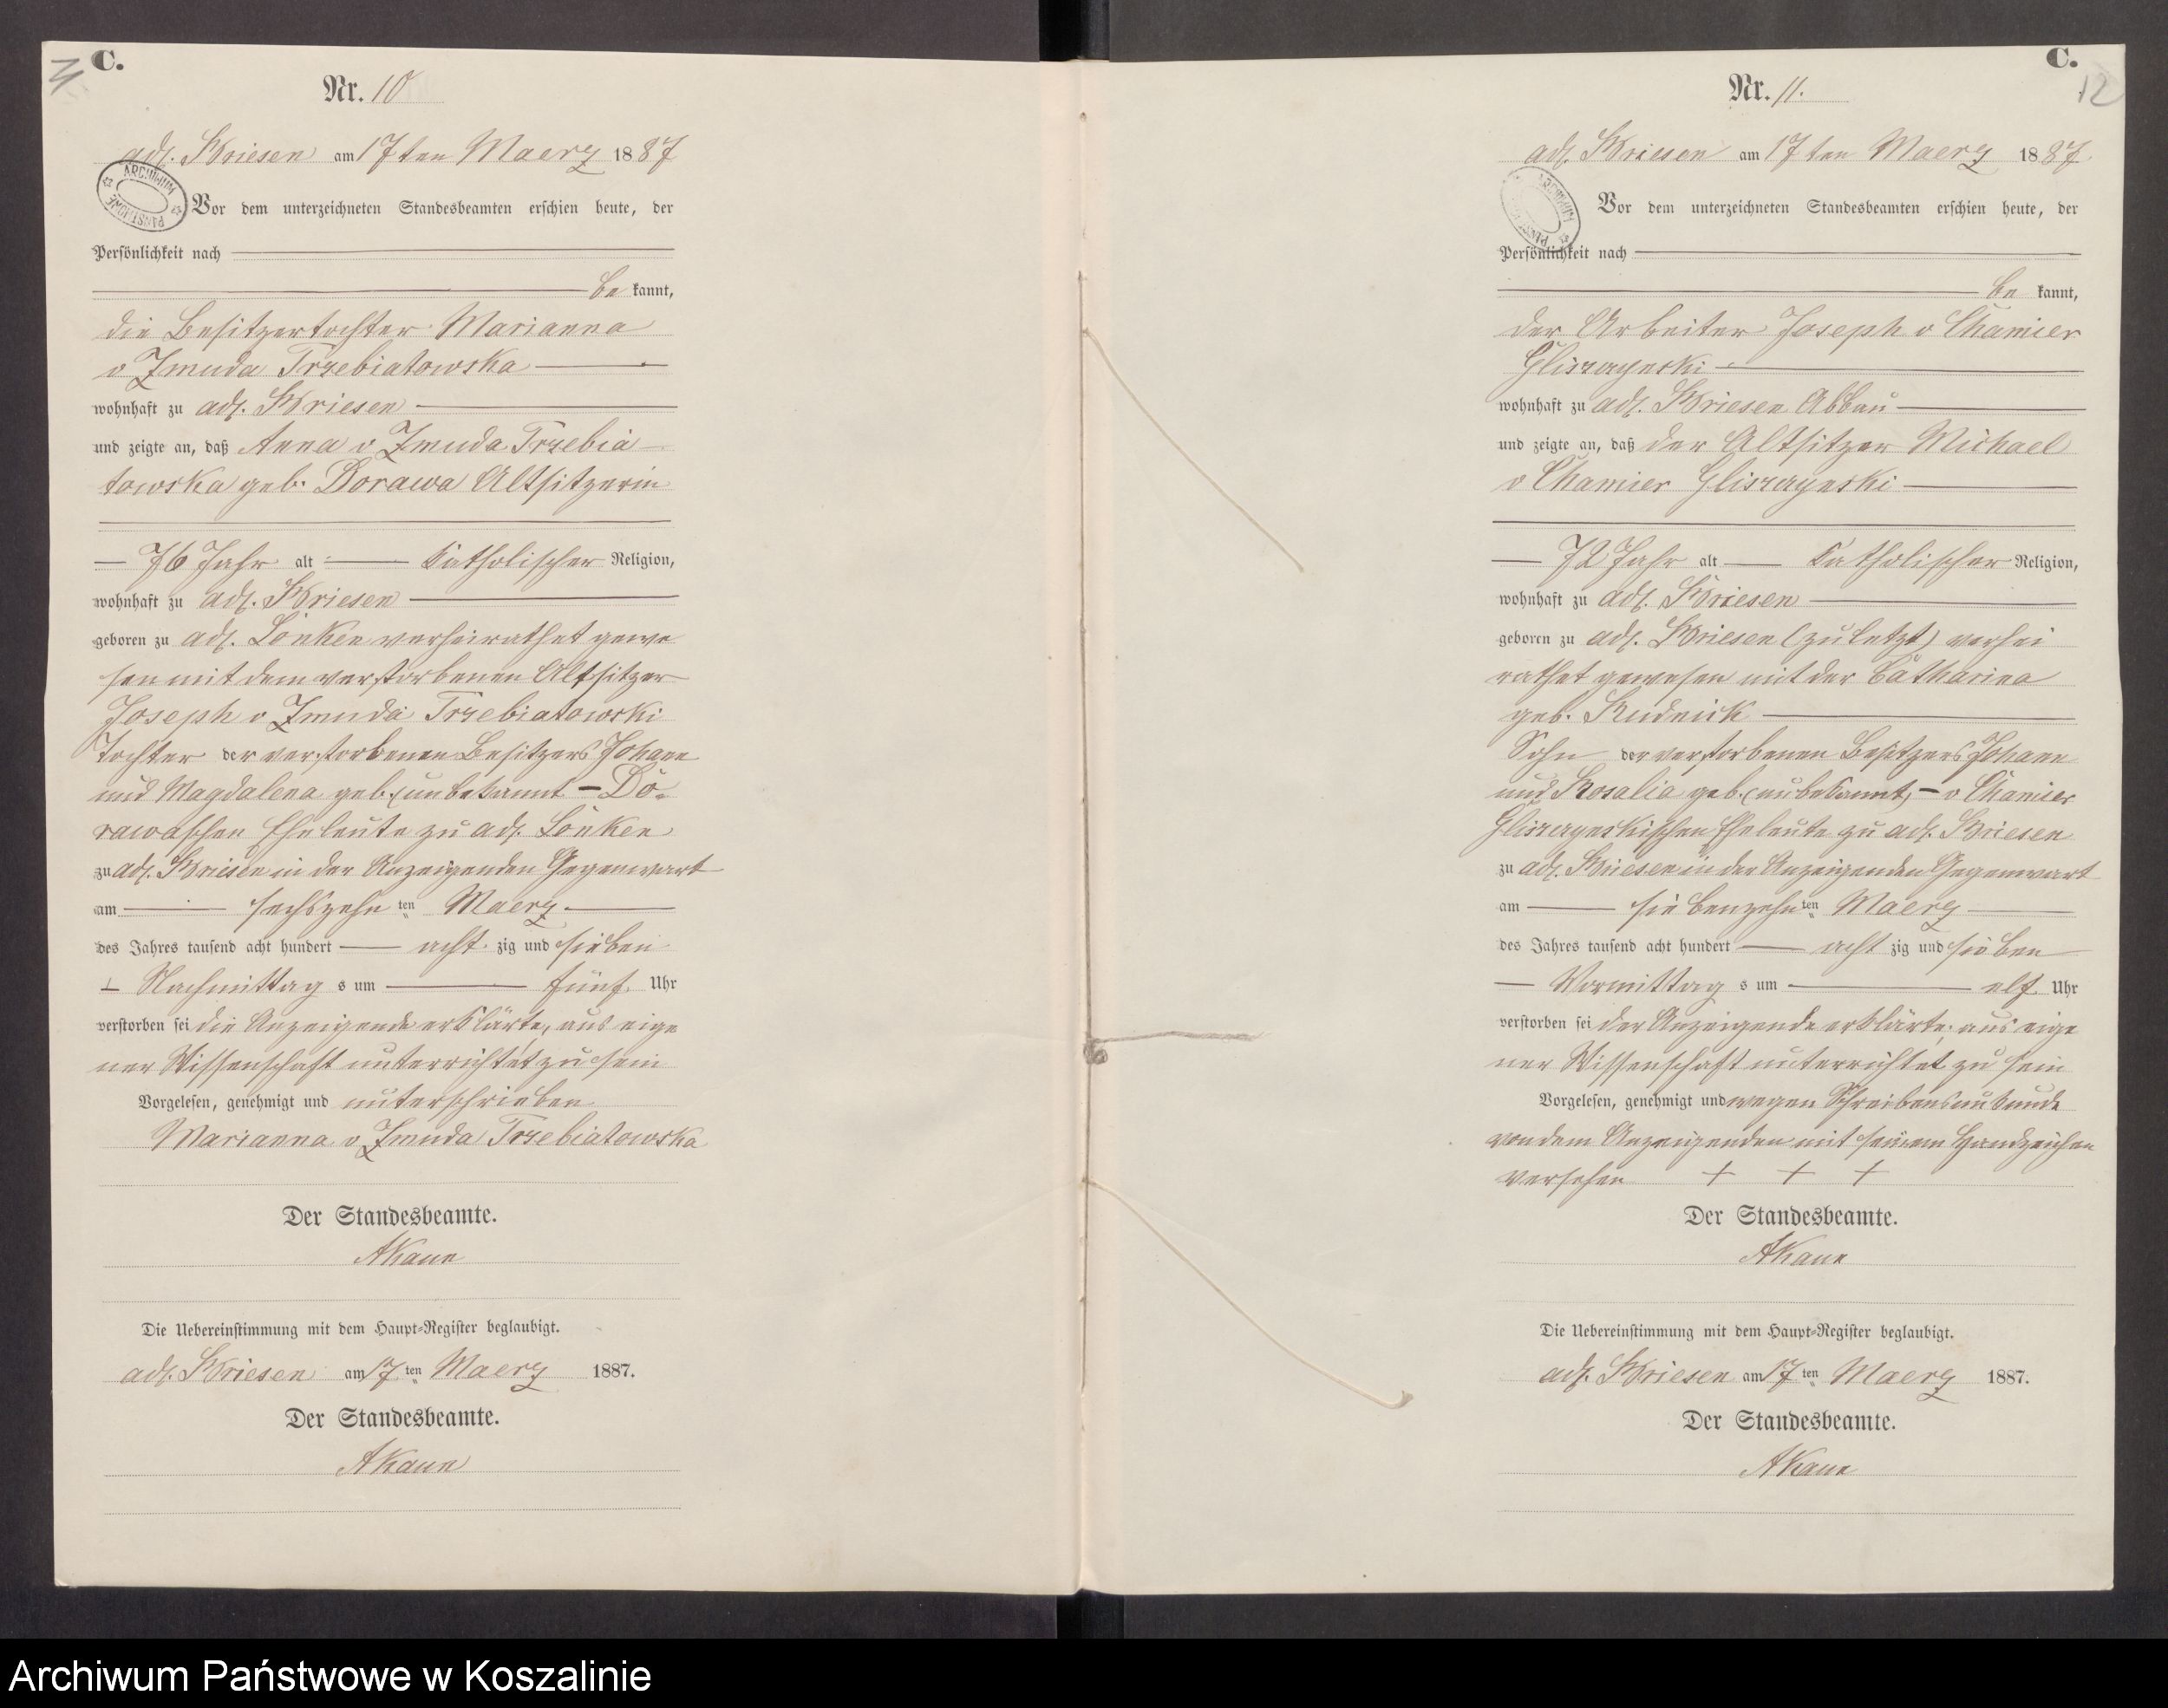 C.
Nr. 10
adl. Briesen am 17ten Maerz 1887
ARCHIWUM PAŃSTWOWE
Vor dem unterzeichneten Standesbeamten erschien heute, der
Persönlichkeit nach
be kannt,
die Besitzertochter Marianna
v Zmuda Trzebiatowska
wohnhaft zu adl. Briesen
und zeigte an, daß Anna v Zmuda Trzebia-
towska geb. Dorawa Altsitzerin
76 Jahr alt katholischer Religion,
wohnhaft zu adl. Briesen
geboren zu adl. Lonken verheirathet gewe
sen mit dem verstorbenen Altsitzer
Joseph v Zmuda Trzebiatowski
Tochter der verstorbenen Besitzers Johann
und Magdalena geb. (unbekannt - Do-
rawaschen Eheleute zu adl. Lonken
zu adl. Briesen in der Anzeigenden Gegenwart
am sechszehn ten Maerz
des Jahres tausend acht hundert acht zig und sieben
Nachmittag s um fünf Uhr
verstorben sei die Anzeigende erklärte, aus eige
ner Wissenschaft unterrichtet zu sein
Vorgelesen, genehmigt und unterschrieben
Marianna v Zmuda Trzebiatowska
Der Standesbeamte.
AKaun
Die Uebereinstimmung mit dem Haupt-Register beglaubigt.
adl. Briesen am 17 ten Maerz 1887.
Der Standesbeamte.
AKaun
C.
12
Nr. 11.
adl. Briesen am 17ten Maerz 1887.
ARCHIWUM PAŃSTWOWE
Vor dem unterzeichneten Standesbeamten erschien heute, der
Persönlichkeit nach
be kannt,
der Arbeiter Joseph v Chamier
Gliszczynski
wohnhaft zu adl. Briesen Abbau
und zeigte an, daß der Altsitzer Michael
v Chamier Gliszczynski
72 Jahr alt katholischer Religion,
wohnhaft zu adl. Briesen
geboren zu adl. Briesen (zuletzt) verhei
rathet gewesen mit der Catharina
geb. Rudnick
Sohn der verstorbenen Besitzers Johann
und Rosalia geb. (unbekannt, - v Chamier
Gliszczynskischen Eheleute zu adl. Briesen
zu adl. Briesen in der Anzeigenden Gegenwart
am siebenzehn ten Maerz
des Jahres tausend acht hundert acht zig und sieben
Vormittag s um elf Uhr
verstorben sei der Anzeigende erklärte, aus eige
ner Wissenschaft unterrichtet zu sein
Vorgelesen, genehmigt und wegen Schreibensunkunde
von dem Anzeigenden mit seinem Handzeichen
versehen + + +
Der Standesbeamte.
AKaun
Die Uebereinstimmung mit dem Haupt-Register beglaubigt.
adl. Briesen am 17 ten Maerz 1887.
Der Standesbeamte.
AKaun
Archiwum Państwowe w Koszalinie